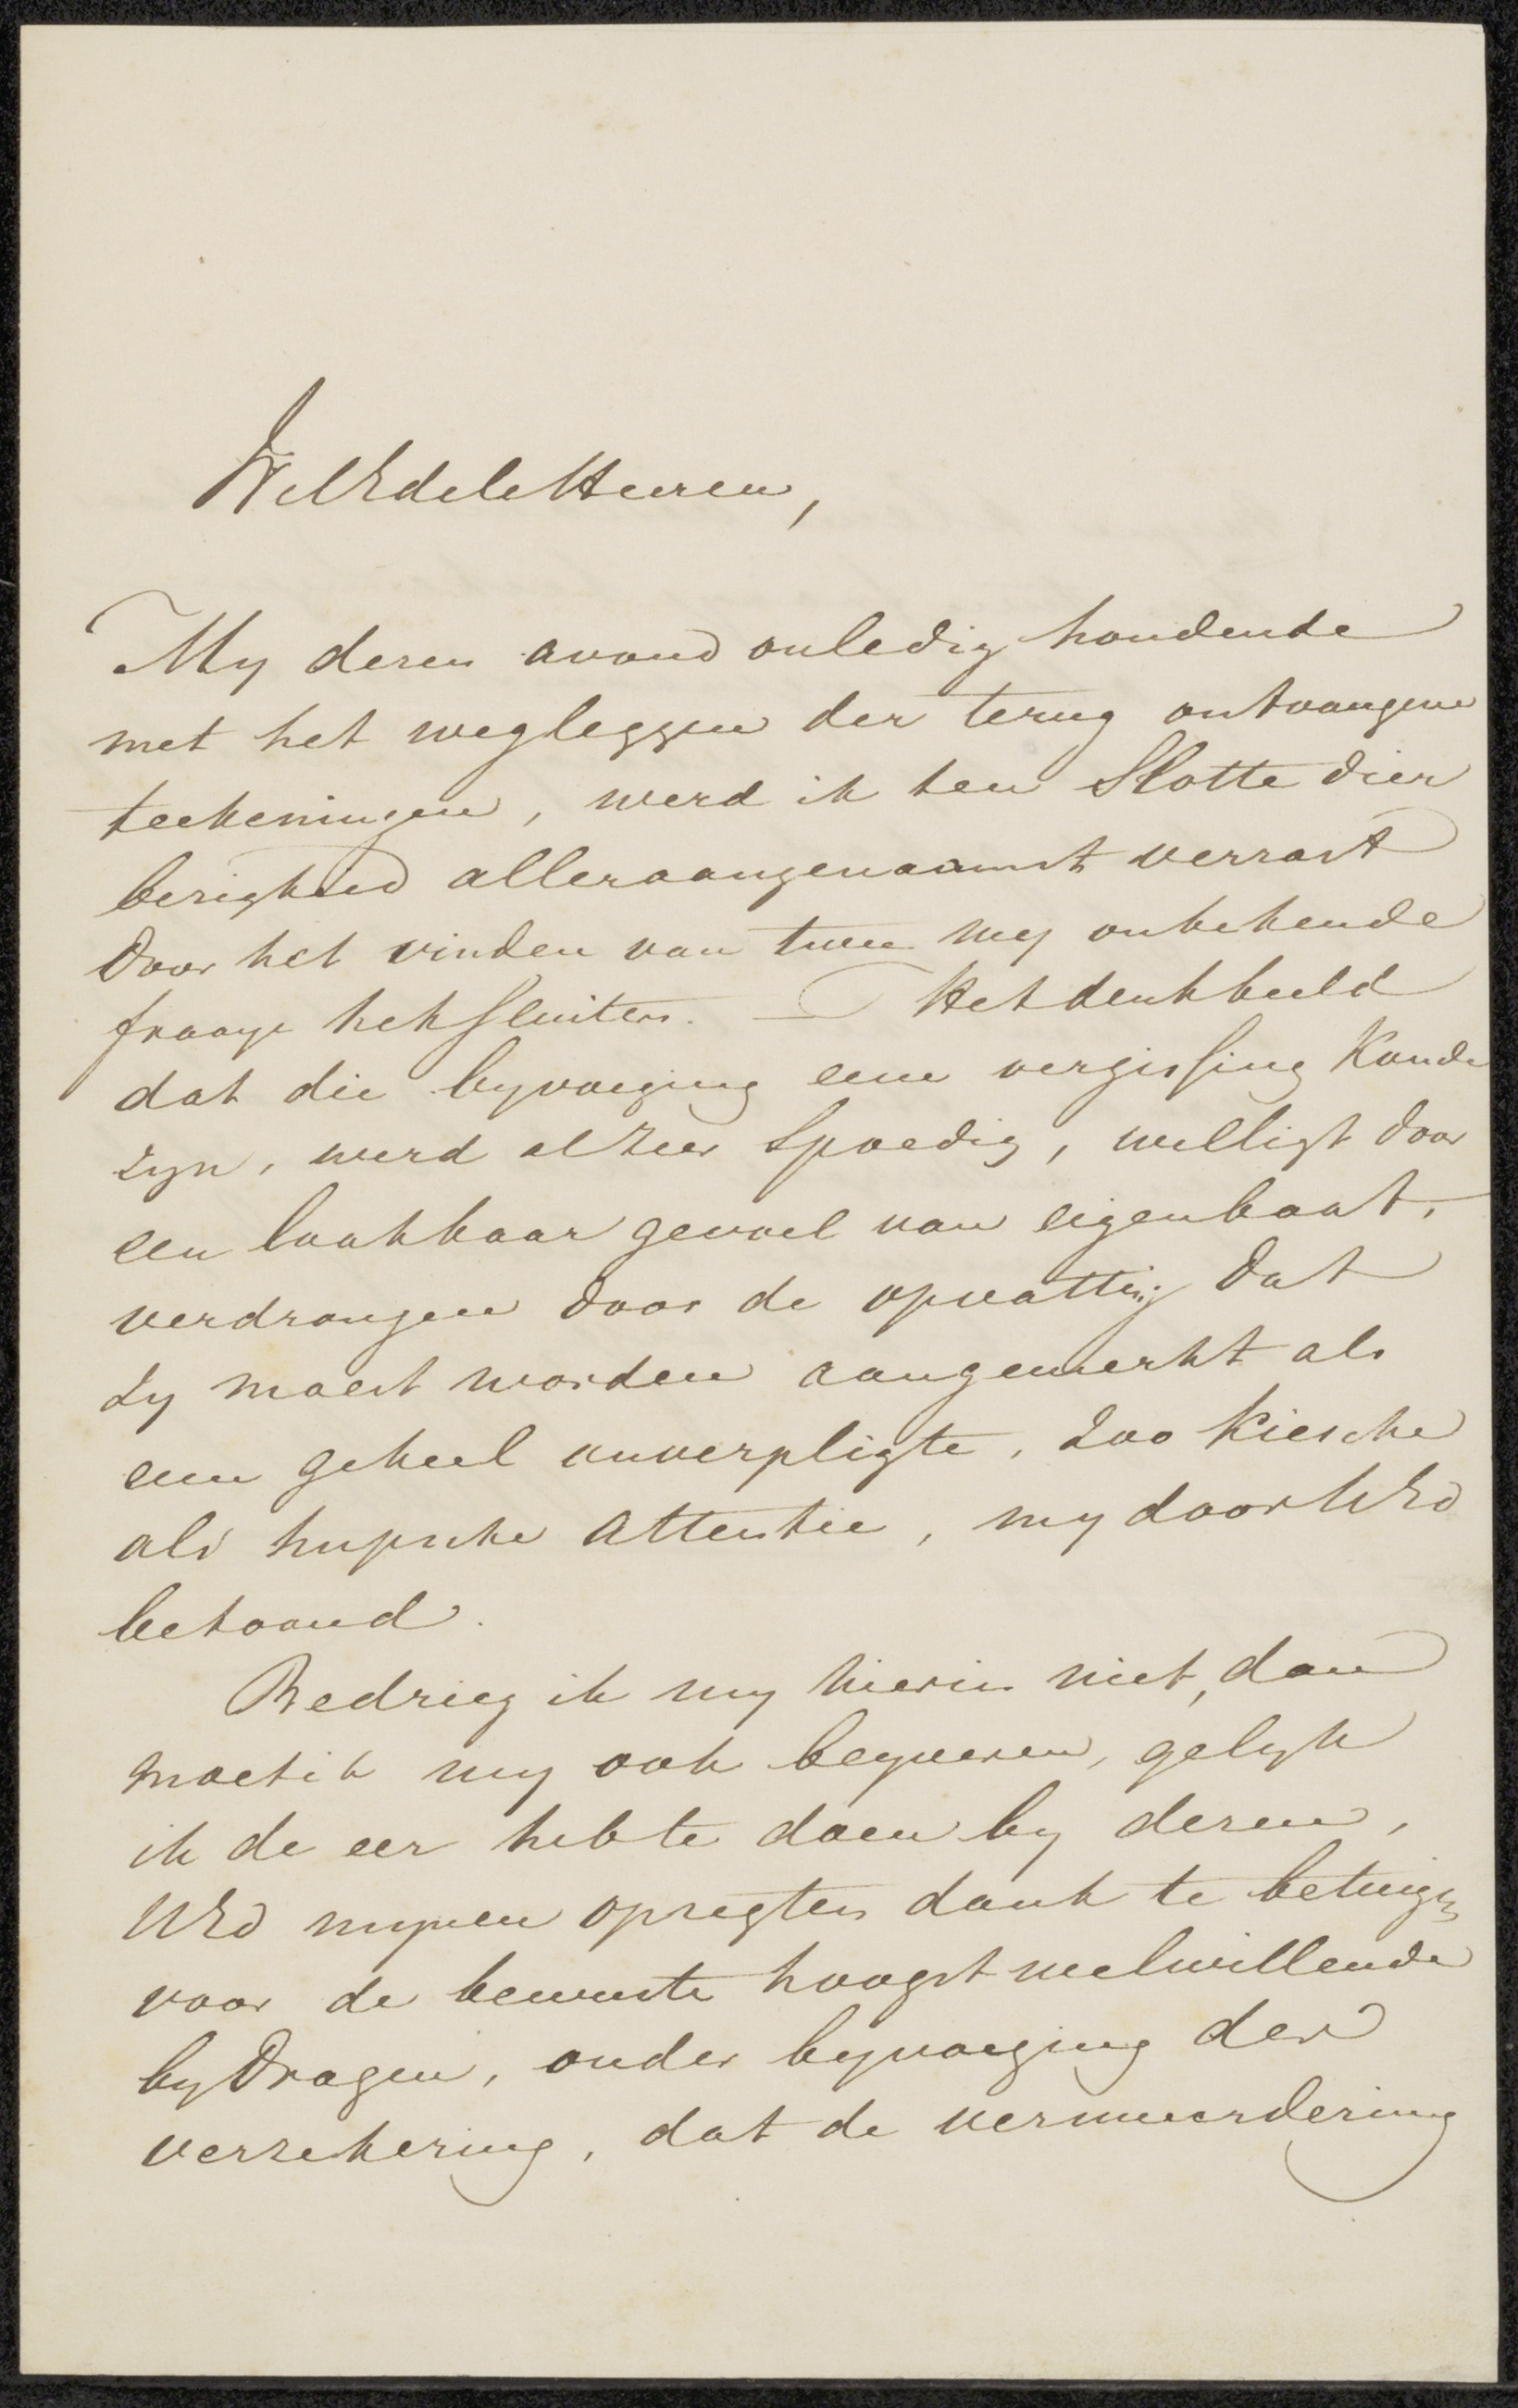 WelEdele Heeren,
My dezen avond onledig houdende
met het wegleggen der terug ontvangene
teekeningen, werd ik ten Slotte dier
bezigheid alleraangenaamst verrast
door het vinden van twee my onbekende
fraaye heksluiters. — Het denkbeeld
dat die byvoeging eene vergissing Konde
zyn, werd al zeer Spoedig, welligt door
een laakbaar gevoel van eigenbaat,
verdrongen door de opvatting dat
Zy moest worden aangemerkt als
eene geheel onverpligte, zoo Kiesche
als heupsche attentie, my door UEd
betoond.
Bedrieg ik my hierin niet, dan
moet ik my ook beyveren, gelyk
ik de eer heb te doen by dezen,
UEd mynen opregten dank te betuigen
voor de bewuste hoogst welwillende
bydragen, onder byvoeging der
verzekering, dat de vermeerdering